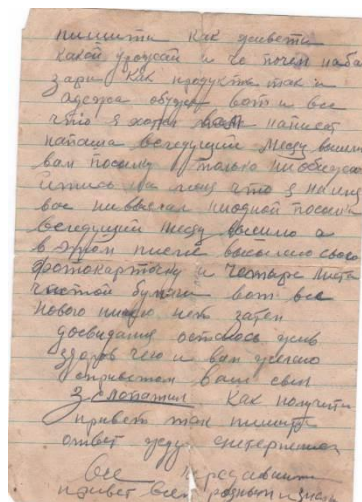 пишити как живети
какой урожай и че почем на ба
зари как продукты так и
одежа обувь вот и все
что я хотел вам написат
папаша вследущий месец вышлю
вам посылку только ниобижай
итись на миня что я на
вас ни выслал ниодной посылки
вследущий месец вышлю а
в этом писме высылаю свою
фотокарточку и четыре листа
чистой бумаги вот все
нового ничего нет затем
досвидания остаюсь жив
здоров чего и вам желаю
сприветом ваш сын
Как получити
привет так пишити
ответ жду снетерпением
Все
привет всем родным и знаком